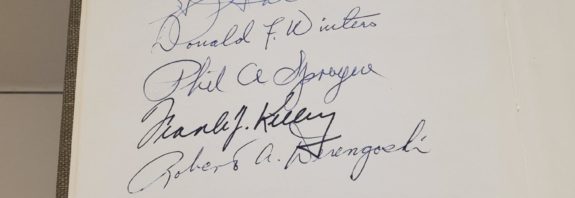 Donald F. Winters
Phil A Sprague
Frank J. Kelley
Robert A. Derengoski